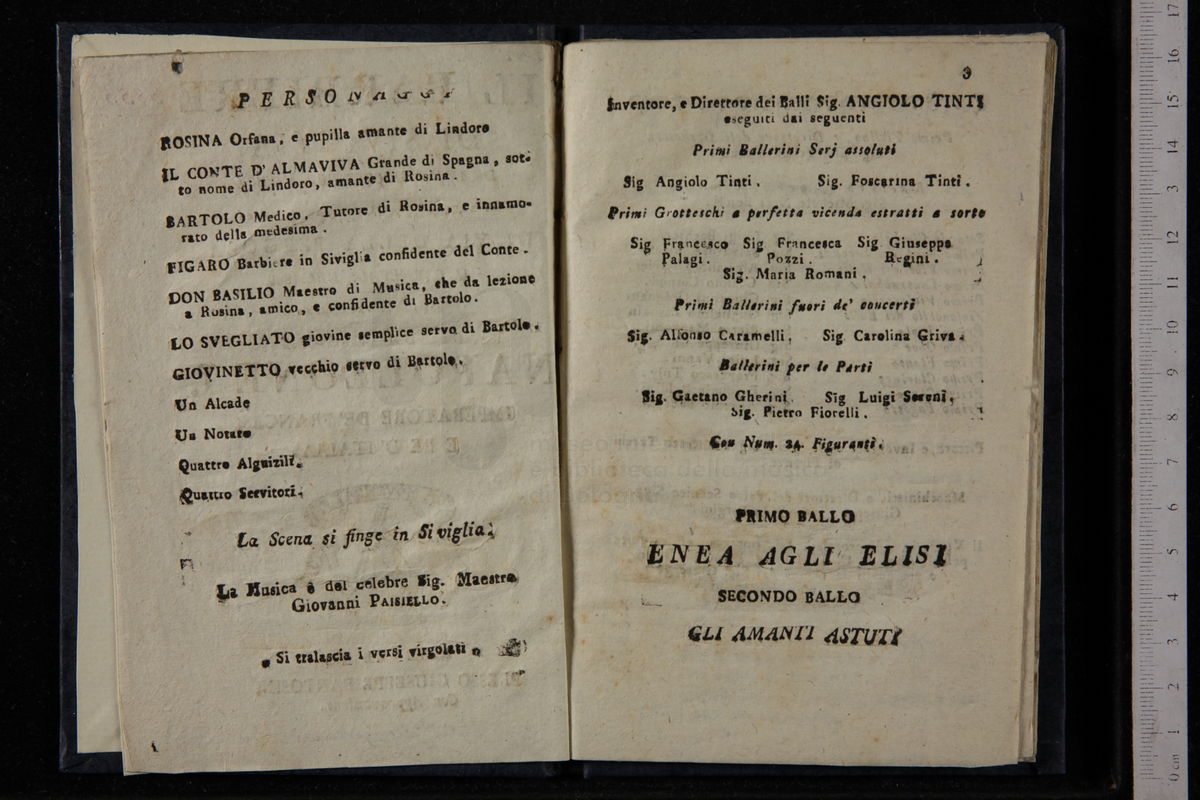 PERSONAGGI
ROSINA Orfana, e pupilla amante di Lindoro
IL CONTE D' ALMAVIVA Grande di Spagna, sot-
to nome di Lindoro, amante di Rosina.
BARTOLO Medico, Tutore di Rosina, e innamo-
rato della medesima.
FIGARO Barbiere in Siviglia confidente del Conte.
DON BASILIO Maestro di Musica, che da lezione
a Rosina, amico, e confidente di Bartolo.
LO SVEGLIATO giovine semplice servo di Bartolo.
GIOVINETTO vecchio servo di Bartolo.
Un Alcade
Un Notaro
Quattro Alguizili.
Quattro Servitori.
La Scena si finge in Siviglia.
La Musica è del celebre Sig. Maestro
Giovanni PAISIELLO.
„ Si tralascia i versi virgolati „
3
Inventore, e Direttore dei Balli Sig. ANGIOLO TINTI
eseguiti dai seguenti
Primi Ballerini Serj assoluti
Sig Angiolo Tinti. Sig. Foscarina Tinti.
Primi Grotteschi a perfetta vicenda estratti a sorte
Sig Francesco Sig Francesca Sig Giuseppe
Palagi. Pozzi. Regini.
Sig. Maria Romani.
Primi Ballerini fuori de' concerti
Sig. Alfonso Caramelli. Sig Carolina Griva.
Ballerini per le Parti
Sig. Gaetano Gherini. Sig Luigi Sereni,
Sig. Pietro Fiorelli.
Con Num. 24. Figuranti.
PRIMO BALLO
ENEA AGLI ELISI
SECONDO BALLO
GLI AMANTI ASTUTI